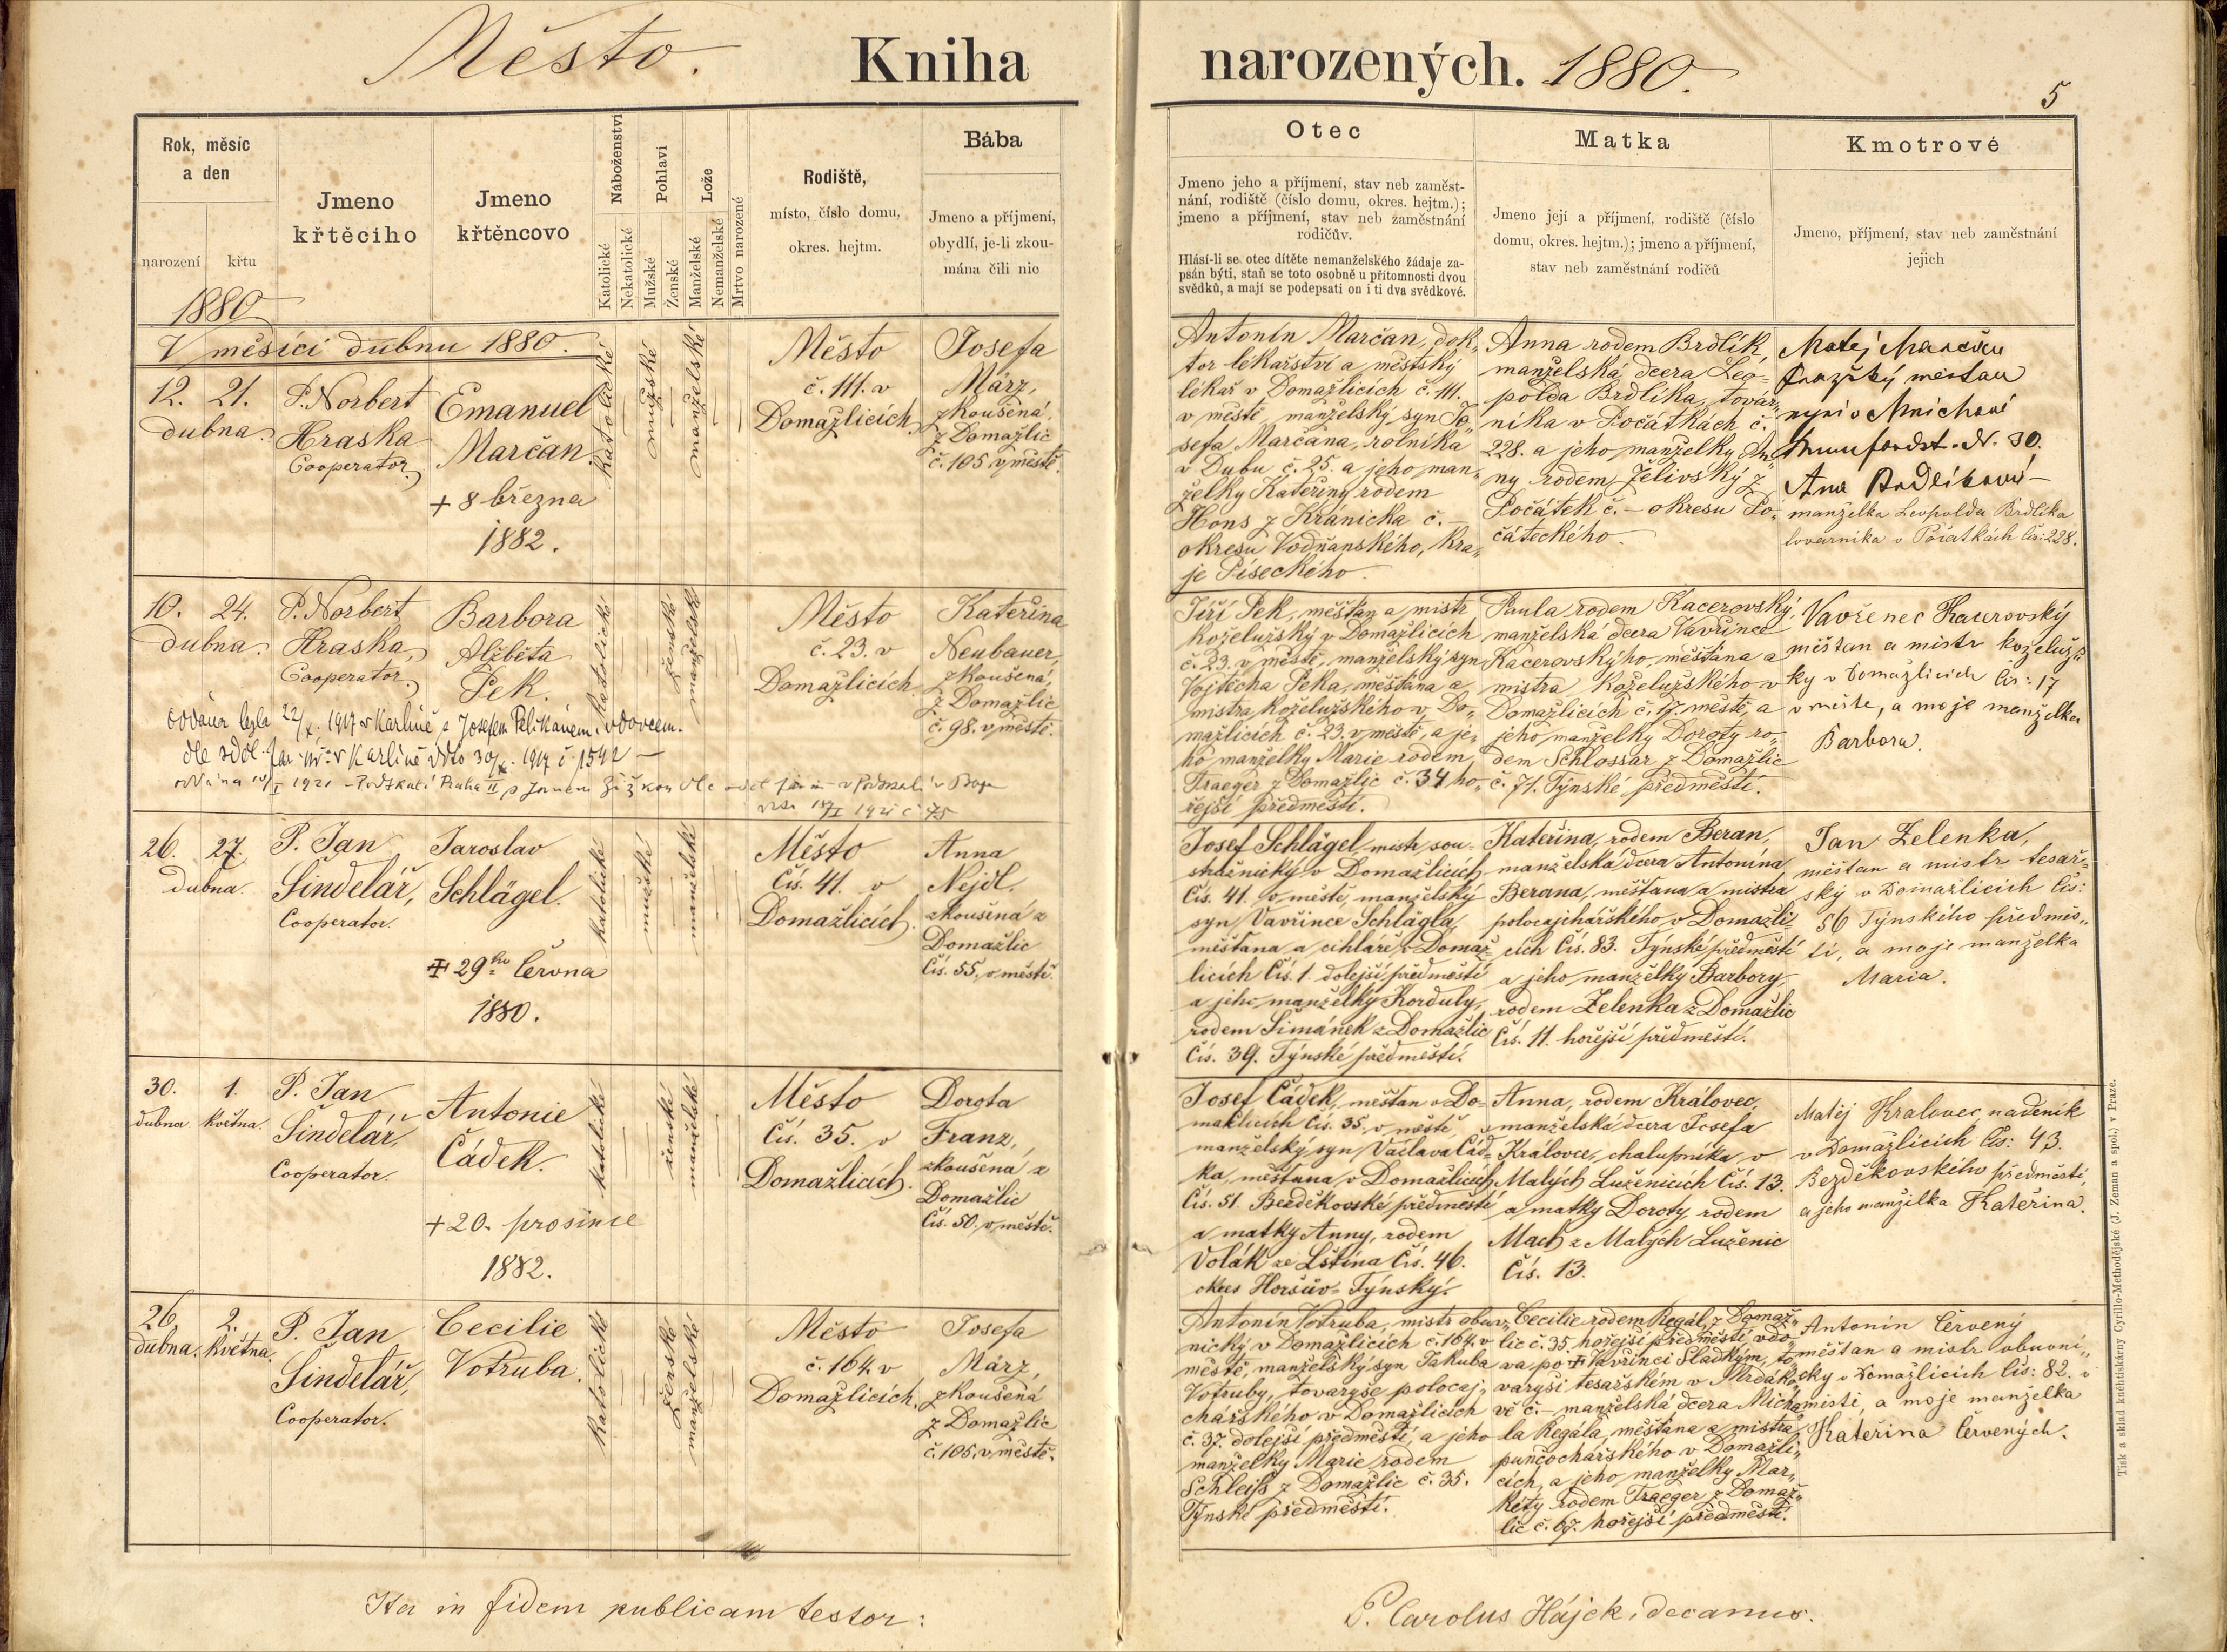 Město. Kniha narozených. 1880.
5
Rok, měsíc
a den
narození křtu
Jmeno
křtěcího
Jmeno
křtěncovo
Náboženství
Katolické
Nekatolické
Pohlaví
Mužské
Ženské
Lože
Manželské
Nemanželské
Mrtvo narozené
Rodiště,
místo, číslo domu,
okres. hejtm.
Bába
Jmeno a příjmení,
obydlí, je-li zkou-
mána čili nic
Otec
Jmeno jeho a příjmení, stav neb zaměst-
nání, rodiště (číslo domu, okres. hejtm.);
jmeno a příjmení, stav neb zaměstnání
rodičův.
Hlásí-li se otec dítěte nemanželského žádaje za-
psán býti, staň se toto osobně u přítomnosti dvou
svědků, a mají se podepsati on i ti dva svědkové.
Matka
Jmeno její a příjmení, rodiště (číslo
domu, okres. hejtm.); jmeno a příjmení,
stav neb zaměstnání rodičů
Kmotrové
Jmeno, příjmení, stav neb zaměstnání
jejich
1880
V měsíci dubnu 1880.
12. 21.
dubna.
P. Norbert
Hraska
Cooperator.
Emanuel
Marčan
+ 8 března
1882.
katolické
mužské
manželské
Město
č. 111. v
Domažlicích.
Josefa
März,
zkoušená,
z Domažlic
č. 105 v městě.
Antonín Marčan, dok-
tor lékařství a městský
lékař v Domažlicích č. 111.
v městě, manželský syn Jo-
sefa Marčana, rolníka
v Dubu č. 25. a jeho man-
želky Kateřiny rodem
Hons z Kránicka č. –
okresu Vodňanského, kra-
je Píseckého.
Anna rodem Brdlík,
manželská dcera Leo-
polda Brdlíka, továr-
níka v Počátkách č.
228. a jeho manželky An-
ny rodem Želivský z
Počátek č. – okresu Po-
čáteckého.
Matěj Marčan
Pražský měštan
nyní v Mnichově
N. 30.
Ana Brdlíková –
manželka Leopolda Brdlíka
tovarnika v Počatkách čís: 228.
10. 24.
dubna.
P. Norbert
Hraska,
Cooperator.
Barbora
Alžběta
Pek.
katolické
ženské
manželské
Město
č. 23. v
Domažlicích.
Kateřina
Neubauer,
zkoušená,
z Domažlic
č. 98. v městě.
oddána byla 22/X. 1917 v Karlíně s Josefem Pelikánem, vdovcem.
dle sděl. far. úř. v Karlíně ddto 30/X. 1917 č. 1592 –
1921 Praha II
Jiří Pek, měšťan a mistr
koželužský v Domažlicích
č. 23. v městě, manželský syn
Vojtěcha Peka, měšťana a
mistra koželužského v Do-
mažlicích č. 23. v městě, a je-
ho manželky Marie rodem
Traeger z Domažlic č. 34 ho-
řejší předměstí.
Paula rodem Kacerovský,
manželská dcera Vavřince
Kacerovského, měšťana a
mistra koželužského v
Domažlicích č. 17. městě, a
jeho manželky Doroty ro-
dem Schlossar z Domažlic
č. 71. Týnské předměstí.
Vavřenec Kacerovský
měštan a mistr koželuž-
ky v Domažlicích čís: 17
v měste, a moje manželka
Barbora.
26. 27.
dubna.
P. Jan
Šindelář,
Cooperator.
Jaroslav
Schlägel.
+ 29ho června
1880.
katolické
mužské
manželské
Město
Čís. 41. v
Domažlicích.
Anna
Nejdl.
zkoušená z
Domažlic
Čís. 55. v městě.
Josef Schlägel mistr sou-
stružnický v Domažlicích
Čís. 41. v městě, manželský
syn Vavřince Schlägla,
měšťana a cihláře v Domaž-
licích Čís. 1. dolejší předměstí
a jeho manželky Korduly,
rodem Šimánek z Domažlic
Čís. 39. Týnské předměstí.
Kateřina, rodem Beran,
manželská dcera Antonína
Berana, měšťana a mistra
polocajchářského v Domažli-
cích Čís. 83. Týnské předměstí
a jeho manželky Barbory,
rodem Zelenka z Domažlic
Čís. 11. hořejší předměstí.
Jan Zelenka,
měštan a mistr tesař-
ský v Domažlicích čís:
56 Týnského předměs-
tí, a moje manželka
Maria.
30. 1.
dubna května.
P. Jan
Šindelář,
Cooperator.
Antonie
Čádek.
+ 20. prosince
1882.
katolické
ženské
manželské
Město
Čís. 35. v
Domažlicích.
Dorota
Franz,
zkoušená z
Domažlic
Čís. 50. v městě.
Josef Čádek, mešťan v Do-
mažlicích Čís. 35. v městě
manželský syn Václava Čád-
ka, mešťana v Domažlicích
Čís. 51. Bezděkovské předměstí
a matky Anny, rodem
Volák ze Lštína Čís. 46.
okres Horšův-Týnský.
Anna, rodem Královec,
manželská dcera Josefa
Královce, chalupníka v
Malých Luženicích Čís. 13.
a matky Doroty, rodem
Mach z Malých Luženic
Čís. 13.
Matěj Kralovec, nadeník
v Domažlicích čís: 43.
Bezděkovského předmestí,
a jeho manželka Kateřina.
26. 2.
dubna. května.
P. Jan
Šindelář,
Cooperator.
Cecilie
Votruba.
katolické
ženské
manželské
Město
č. 164. v
Domažlicích.
Josefa
März,
zkoušená
z Domažlic
č. 105. v městě.
Antonín Votruba, mistr obuv-
nický v Domažlicích č. 164. v
městě, manželský syn Jakuba
Votruby, tovaryše polocaj-
chářského v Domažlicích
č. 37. dolejší předměstí, a jeho
manželky Marie rodem
Schleiß z Domažlic č. 35.
Týnské předměstí.
Cecilie rodem Regál, z Domaž-
lic č. 35. hořejší předměstí vdo-
va po + Vavřinci Sladkým, to-
varyši tesařském v Mrdáko-
vě č. – manželská dcera Micha-
la Regála, měšťana a mistra
punčochářského v Domažli-
cích, a jeho manželky Mar-
kéty rodem Traeger z Domaž-
lic č. 67. hořejší předměstí.
Antonin Červený
měštan a mistr obuvni-
cky v Domažlicích čís: 82. v
misti, a moje manželka
Kateřina Červených.
Ita in fidem publicam testor:
P. Carolus Hájek, decanus.
Tisk a sklad knihtiskárny Cyrillo-Methodějské (J. Zeman a spol.) v Praze.